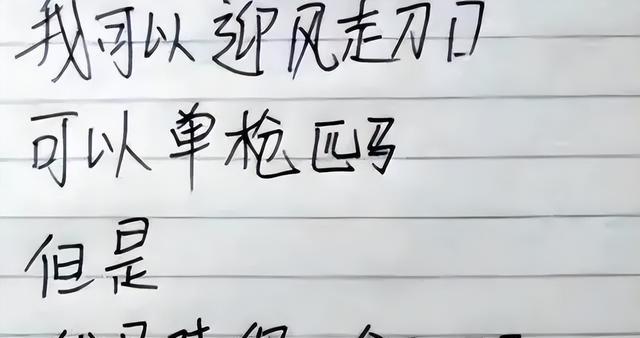 我可以迎风走刀口
可以单枪匹马
但是